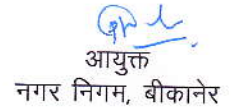 आयुक्त
नगर निगम, बीकानेर